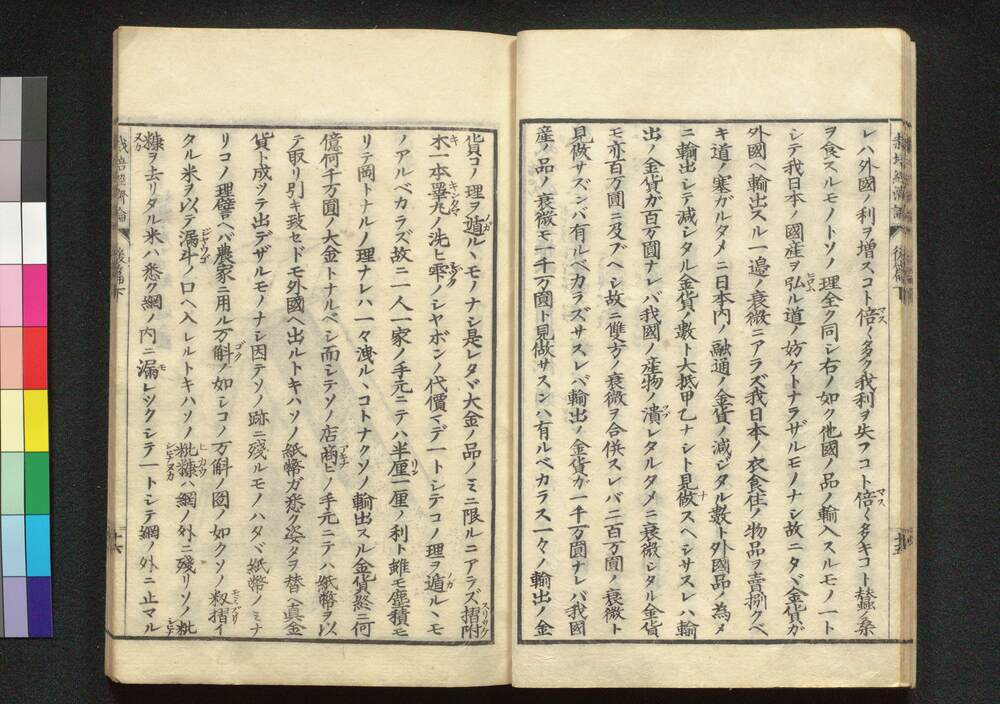 レハ外國ノ利ヲ増スコト倍ノ多ク我利ヲ失フコト倍ノ多キコト蠶ノ桑
ヲ食スルモノトソノ理全ク同シ右ノ如ク他國ノ品ノ輸入スルモノ一ト
シテ我日本ノ國産ヲ弘ル道ノ妨ケトナラザルモノナシ故ニタヾ金貨ガ
外國ヘ輸出スル一邊ノ衰微ニアラズ我日本ノ衣食住ノ物品ヲ賣捌クベ
キ道ノ塞ガルタメニ日本内ノ融通ノ金貨ノ減ジタル數ト外國品ノ為メ
ニ輸出シテ減シタル金貨ノ數ト大抵甲乙ナシト見做スヘシサスレハ輸
出ノ金貨ガ百万圓ナレバ我國ノ産物ノ潰レタルタメニ衰微シタル金貨
モ亦百万圓ニ及ブヘシ故ニ雙方ノ衰微ヲ合併スレバ二百万圓ノ衰微ト
見做サズンバ有ルベカラズサスレバ輸出ノ金貨ガ一千万圓ナレバ我國
産ノ品ノ衰微モ一千万圓ト見做サスンハ有ルベカラス一々ノ輸出ノ金
貨コノ理ヲ遁ルヽモノナシ是レタヾ大金ノ品ノミニ限ルニアラズ摺附
木一本睾丸ノ洗ヒ雫ノシヤボンノ代價マデ一トシテコノ理ヲ遁ルヽモ
ノアルベカラズ故ニ一人一家ノ手元ニテハ半厘一厘ノ利ト雖モ塵積モ
リテ岡トナルノ理ナレハ一々洩ルヽコトナクソノ輸出スル金貨終ニ何
億何千万圓ノ大金トナルベシ而シテソノ店商ヒノ手元ニテハ紙幣ヲ以
テ取リ引キ致セドモ外國ヘ出ルトキハソノ紙幣ガ悉ク姿タヲ替ヘ真金
貨ト成ツテ出デザルモノナシ因テソノ跡ニ殘ルモノハタヾ紙幣ノミナ
リコノ理譬ヘバ農家ニ用ル万斛ノ如シコノ万斛ノ図ノ如クソノ籾摺イ
タル米ヲ以テ漏斗ノ口ヘ入レルトキハソノ粃糠ハ網ノ外ニ殘リソノ粃
糠ヲ去リタル米ハ悉ク網ノ内ニ漏レツクシテ一トシテ網ノ外ニ止マル
栽培經濟論
後篇下
十六